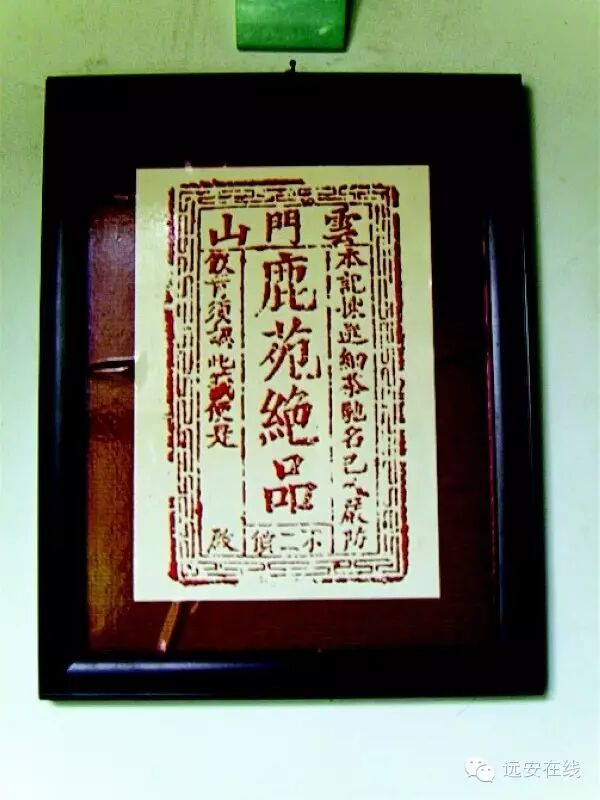 雲門山
本記揀選細茶馳名已久嚴防
鹿苑絶品
不二價
須認此戳便是
远安在线